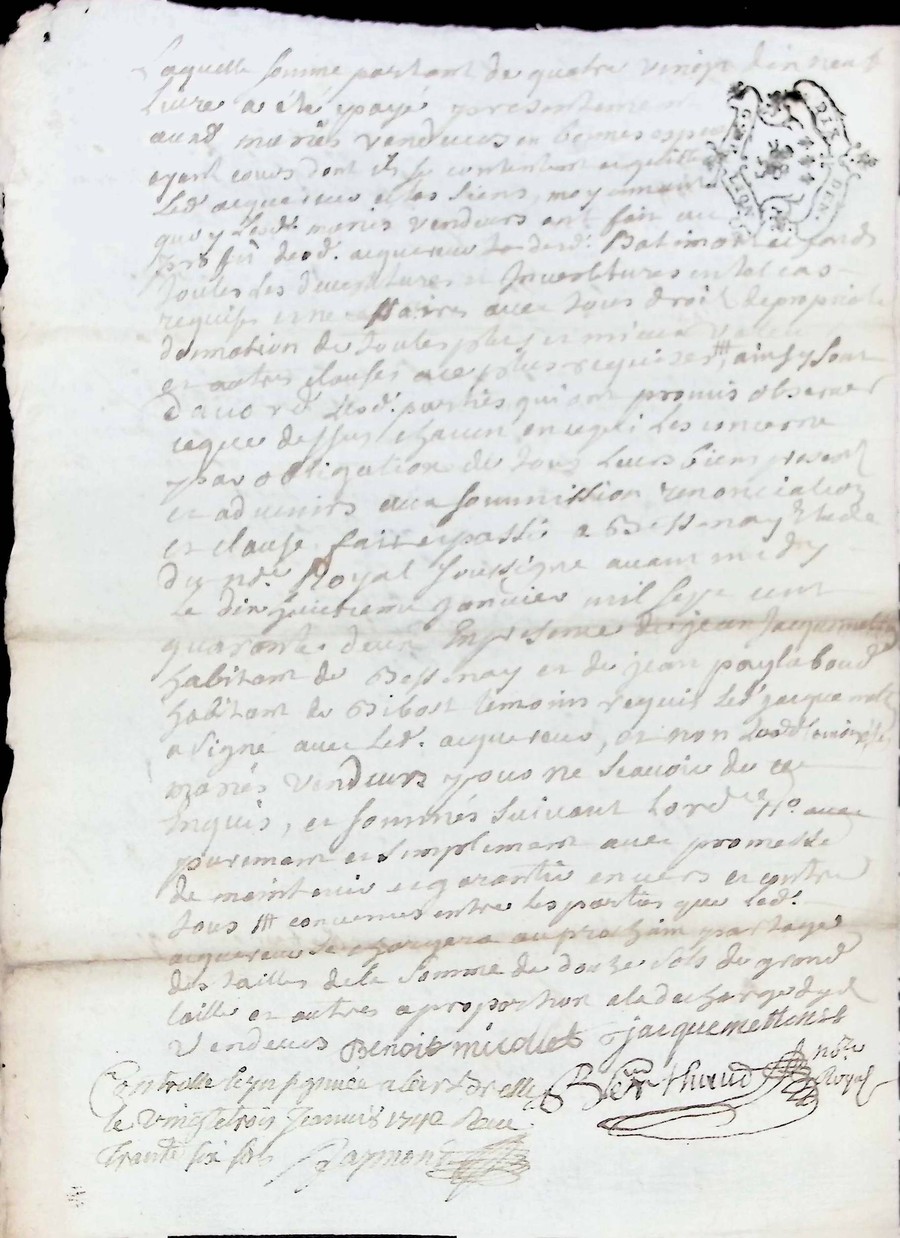 Laquelle somme partant de quatre vingt dix neuf
livre a été payé presentement
aud mariés vendeurs en bonnes espec
ayant cours dont ils se contentent et quitte
Led. acquereur et les siens, moyennant
quoy Lesd. mariés vendeurs ont fait au
proffit dud. acquereur desd. Batiment et fonds
toutes Les devestitures et Investitures en tel cas
requises et necessaires avec tous droit de proprieté
donnation de toutes plus et mieux value
et autres clauses a ce plus requises #, ainsy sont
d'accord Lesd. parties qui ont promis observer
ce que dessus chacun en ce qui Les concerne
par obligation de tous Leurs biens present
et advenirs avec soumission renonciation
et clause fait et passé a Bessenay Etude
du nore Royal soussigné avant midy
Le dix huitieme Janvier mil sept cent
quarante deux En presence de jean Jacquemetton
habitant de Bessenay et de jean
habitant de Bibost temoins requis Led. jacquemet
a signé avec Led. acquereur, et non Lesd.
mariés vendeurs pour ne scavoir de ce
Enquis, et sommés suivant Lord.ce # avec
purement et simplement avec promesse
de maintenir et garantir envers et contre
tous # convenu entre les parties que Led.
acquereur se chargera au prochain partage
des tailles de la somme de douze sols de grand
taille et autres a proportion a la decharge dyd
Vendeurs Benoit jacquemetton
Controllé
le vingt trois Janvier 1742 Receu
trente six sols
Berthaud nore
Royal
DIX DEN.